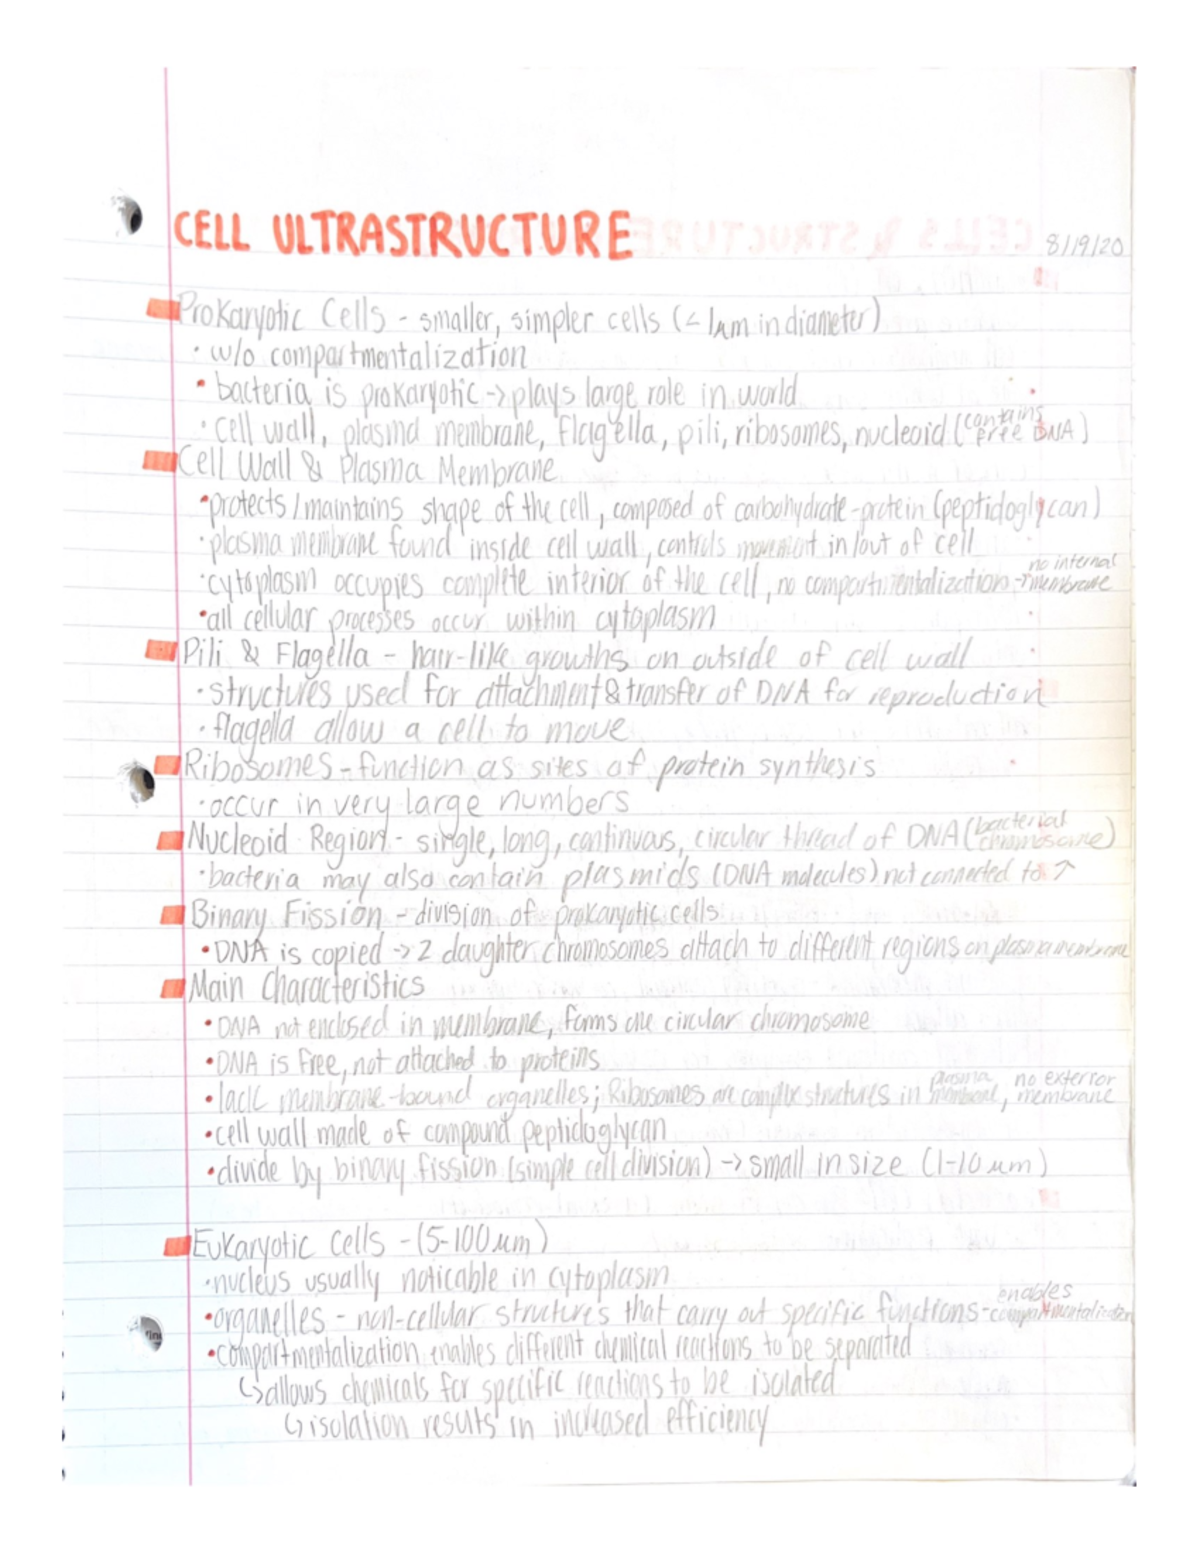 CELL ULTRASTRUCTURE
8/19/20
Prokaryotic Cells - smaller, simpler cells (< 1μm in diameter)
• w/o compartmentalization
• bacteria is prokaryotic -> plays large role in world
• cell wall, plasma membrane, flagella, pili, ribosomes, nucleoid (contains free DNA)
Cell Wall & Plasma Membrane
• protects/maintains shape of the cell, composed of carbohydrate-protein (peptidoglycan)
• plasma membrane found inside cell wall, controls movement in/out of cell
• cytoplasm occupies complete interior of the cell, no compartmentalization - no internal membrane
• all cellular processes occur within cytoplasm
Pili & Flagella - hair-like growths on outside of cell wall
• structures used for attachment & transfer of DNA for reproduction
• flagella allow a cell to move
Ribosomes - function as sites of protein synthesis
• occur in very large numbers
Nucleoid Region - single, long, continuous, circular thread of DNA (bacterial chromosome)
• bacteria may also contain plasmids (DNA molecules) not connected to ↑
Binary Fission - division of prokaryotic cells
• DNA is copied -> 2 daughter chromosomes attach to different regions on plasma membrane
Main Characteristics
• DNA not enclosed in membrane, forms one circular chromosome
• DNA is free, not attached to proteins
• lack membrane-bound organelles; Ribosomes are complex structures in plasma membrane, no exterior membrane
• cell wall made of compound peptidoglycan
• divide by binary fission (simple cell division) -> small in size (1-10 μm)
Eukaryotic Cells - (5-100 μm)
• nucleus usually noticable in cytoplasm
• organelles - non-cellular structures that carry out specific functions - enables compartmentalization
• compartmentalization enables different chemical reactions to be separated
↳ allows chemicals for specific reactions to be isolated
↳ isolation results in increased efficiency